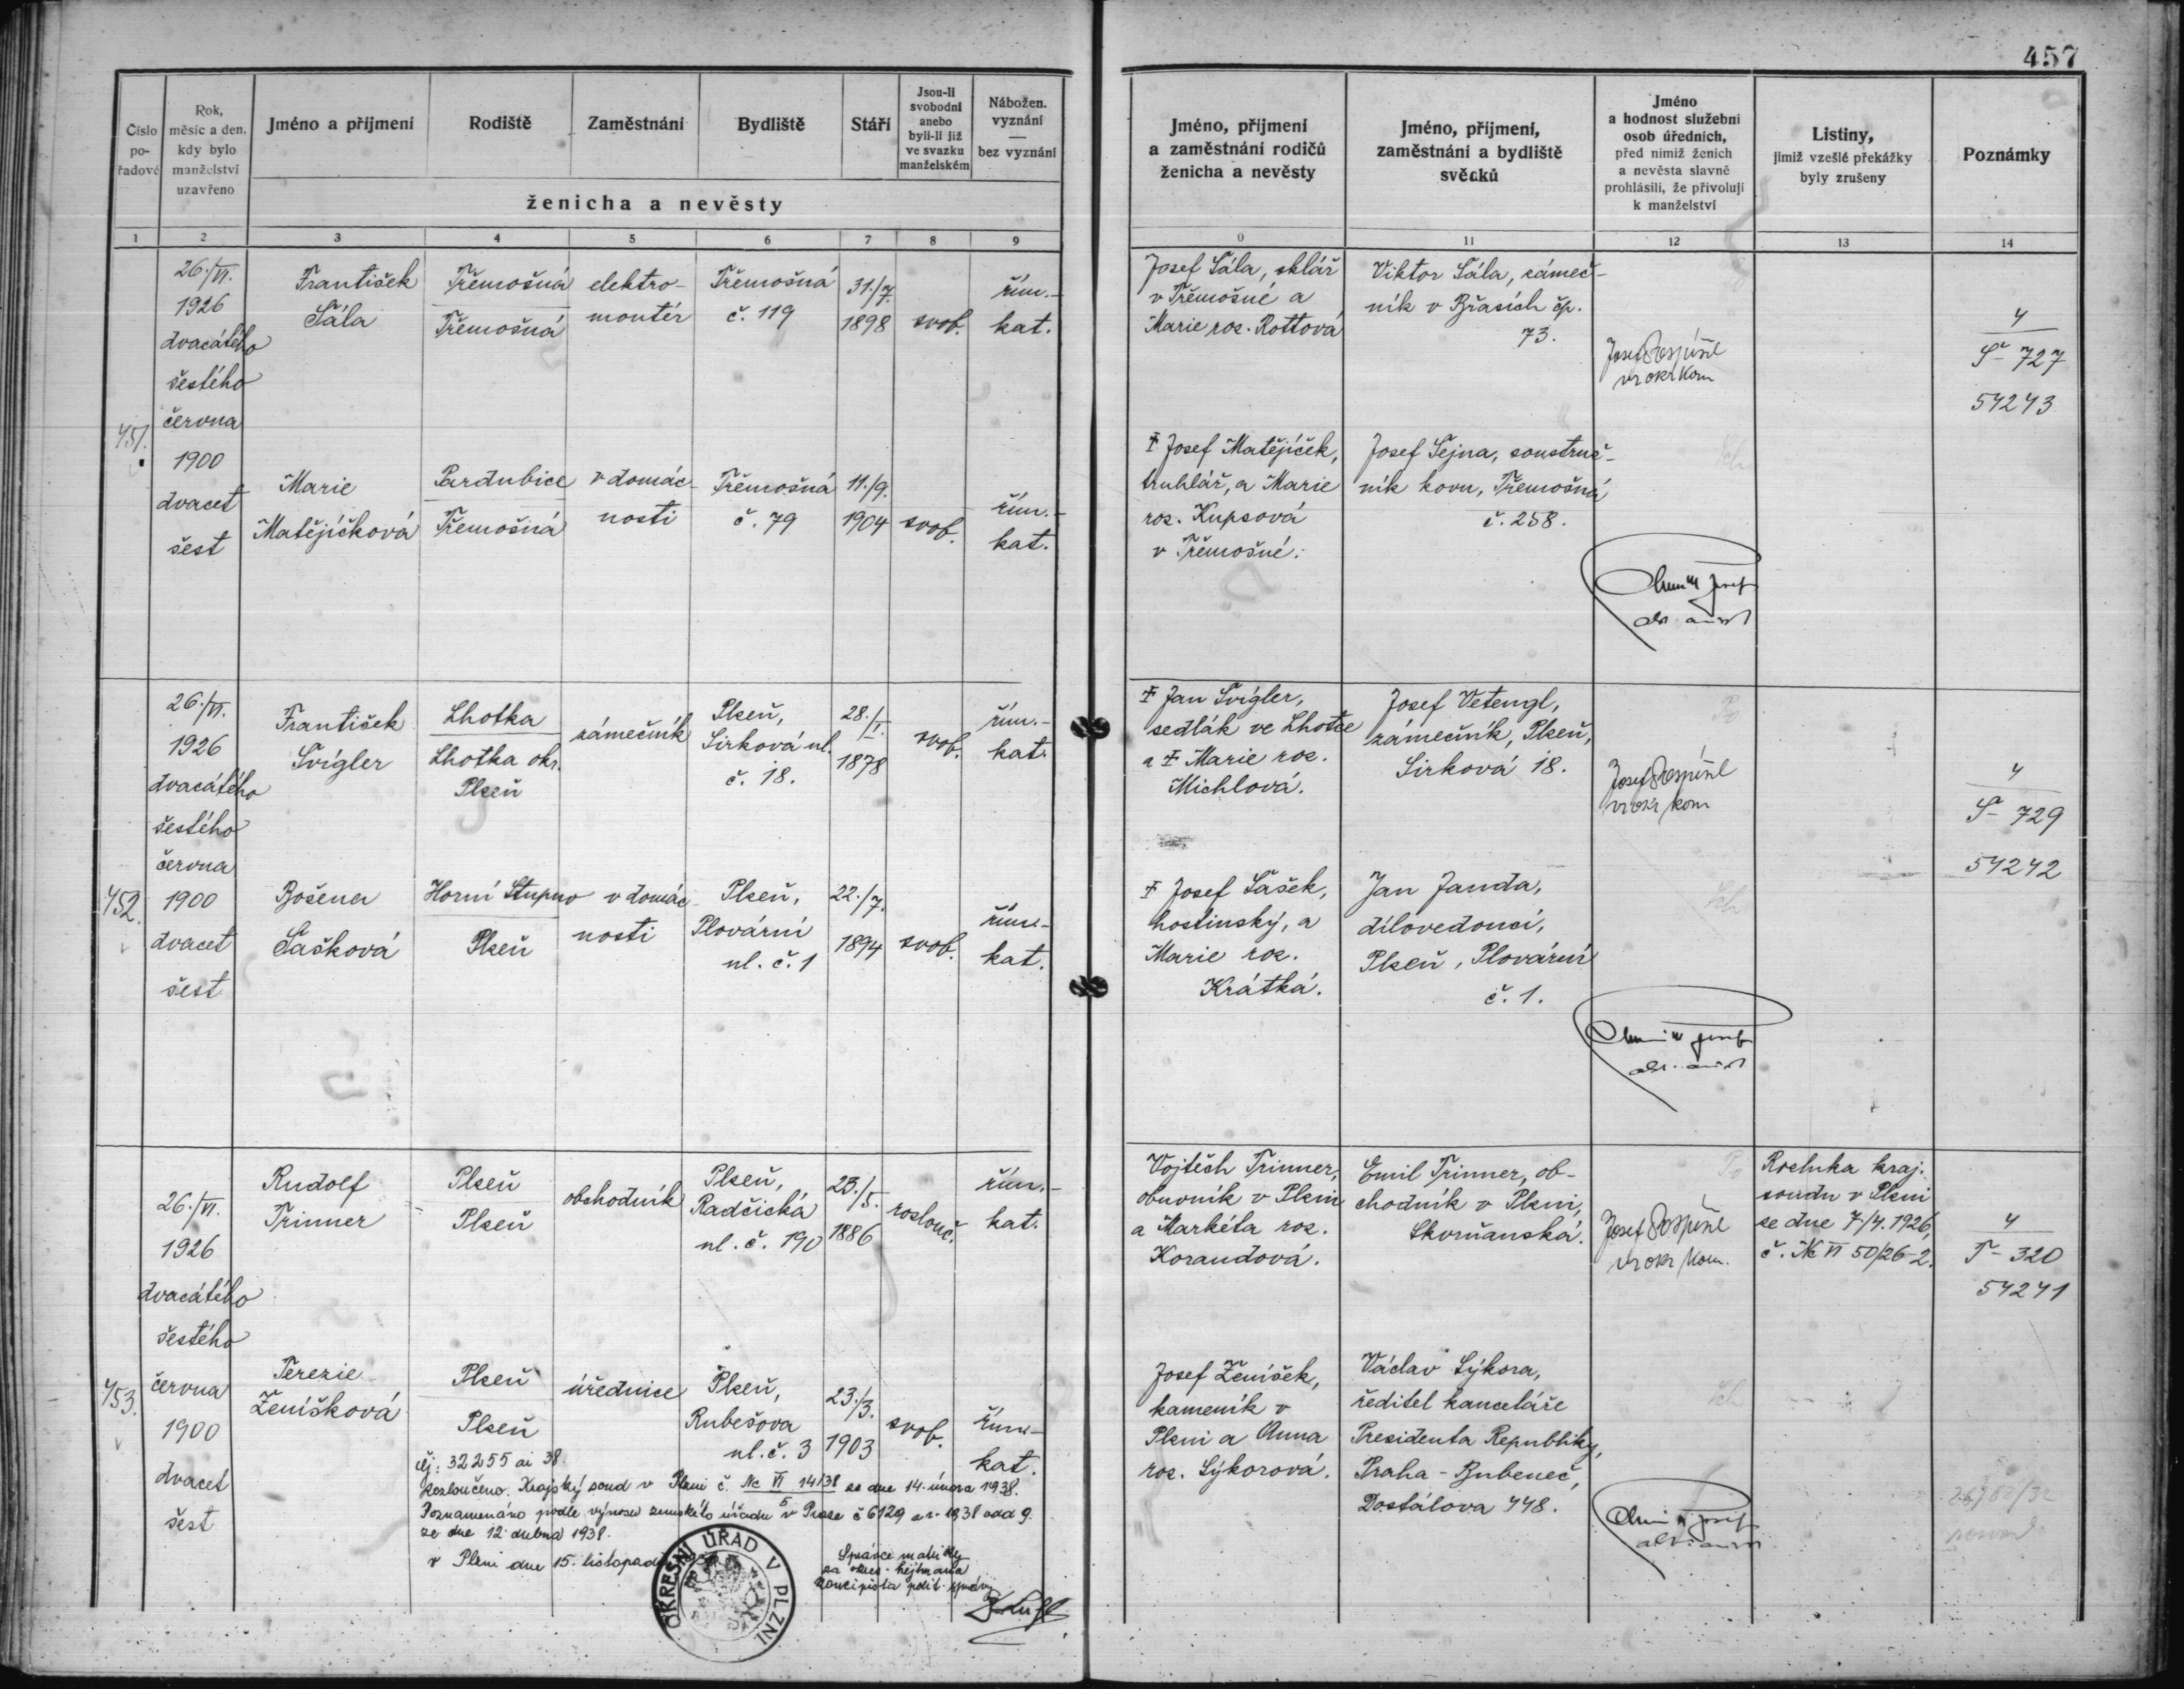 457
Číslo
po-
řadové
Rok,
měsíc a den,
kdy bylo
manželství
uzavřeno
Jméno a příjmení
Rodiště
Zaměstnání
Bydliště
Stáří
Jsou-li
svobodni
anebo
byli-li již
ve svazku
manželském
Nábožen.
vyznání
—
bez vyznání
ženicha a nevěsty
Jméno, příjmení
a zaměstnání rodičů
ženicha a nevěsty
Jméno, příjmení,
zaměstnání a bydliště
svědků
Jméno
a hodnost služební
osob úředních,
před nimiž ženich
a nevěsta slavně
prohlásili, že přivolují
k manželství
Listiny,
jimiž vzešlé překážky
byly zrušeny
Poznámky
1 2 3 4 5 6 7 8 9
0 11 12 13 14
451.
26./VI.
1926
dvacátého
šestého
června
1900
dvacet
šest
František
Šála
Třemošná
Třemošná
elektro-
montér
Třemošná
č. 119
31./7.
1898
svob.
řím.-
kat.
Josef Šála, sklář
v Třemošné a
Marie roz. Rottová
Viktor Šála, zámeč-
ník v Břasích čp.
73.
Josef Pospíšil
vr okr kom
4
Š- 727
54243
Marie
Matějíčková
Pardubice
Třemošná
v domác-
nosti
Třemošná
č. 79
11./9.
1904
svob.
řím.-
kat.
‡ Josef Matějíček,
truhlář, a Marie
roz. Kupsová
v Třemošné.
Josef Šejna, soustruž-
ník kovu, Třemošná
č. 258.
452.
26./VI.
1926
dvacátého
šestého
června
1900
dvacet
šest
František
Švígler
Lhotka
Lhotka okr.
Plzeň
zámečník
Plzeň,
Sirková ul.
č. 18.
28./I.
1878
svob.
řím.-
kat.
‡ Jan Švígler,
sedlák ve Lhotce
a ‡ Marie roz.
Michlová.
Josef Vetengl,
zámečník, Plzeň,
Sirková 18.
Josef Pospíšil
vr okr kom
4
Š- 729
54242
Božena
Šašková
Horní Stupno
Plzeň
v domác-
nosti
Plzeň,
Plovární
ul. č. 1
22./7.
1894
svob.
řím.-
kat.
‡ Josef Šašek,
hostinský, a
Marie roz.
Krátká.
Jan Janda,
dílovedoucí,
Plzeň, Plovární
č. 1.
453.
26./VI.
1926
dvacátého
šestého
června
1900
dvacet
šest
Rudolf
Trinner
Plzeň
Plzeň
obchodník
Plzeň,
Radčická
ul. č. 190
23./5.
1886
rozlouč.
řím.-
kat.
Vojtěch Trinner,
obuvník v Plzni
a Markéta roz.
Korandová.
Emil Trinner, ob-
chodník v Plzni,
Skvrňanská.
Josef Pospíšil
vr okr kom.
Rozluka kraj.
soudu v Plzni
ze dne 7./4. 1926,
č. Nc VI 50/26-2.
4
T- 320
54241
Terezie
Ženíšková
Plzeň
Plzeň
úřednice
Plzeň,
Rubešova
ul. č. 3
23./3.
1903
svob.
řím.-
kat.
Josef Ženíšek,
kameník v
Plzni a Anna
roz. Sýkorová.
Václav Sýkora,
ředitel kanceláře
Presidenta Republiky,
Praha - Bubeneč,
Dostálova 448.
čj: 32255 ai 38.
Rozloučeno. Krajský soud v Plzni č. Nc VI 141/38 ze dne 14. února 1938.
5
Poznamenáno podle výnosu zemského úřadu v Praze č 6129 a r. 1938 odd 9.
ze dne 12. dubna 1938.
v Plzni dne 15. listopadu
Správce matriky
za okres. hejtmana
koncipista polit. správy
OKRESNÍ ÚŘAD V PLZNI